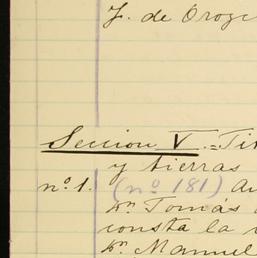 J. de Oroze
Seccion V.= Tit
y tierras
nº 1. (nº 181) Au
Dn Tomás
consta la
Dn Manuel